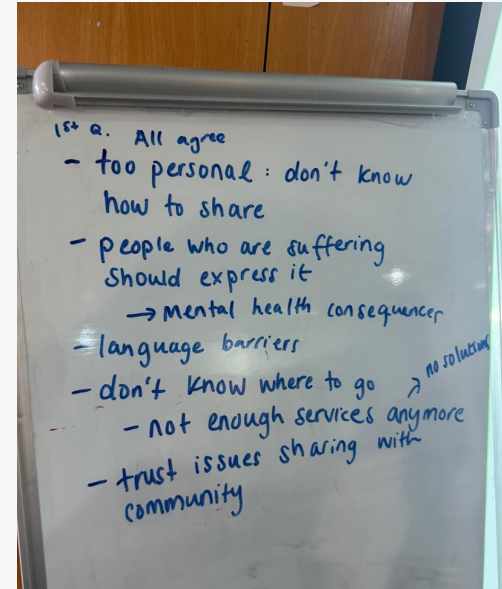 1st Q. All agree
- too personal : don't know
how to share
- people who are suffering
should express it
→ Mental health consequences
- language barriers
- don't know where to go
↗ no solutions
- not enough services anymore
- trust issues sharing with
community